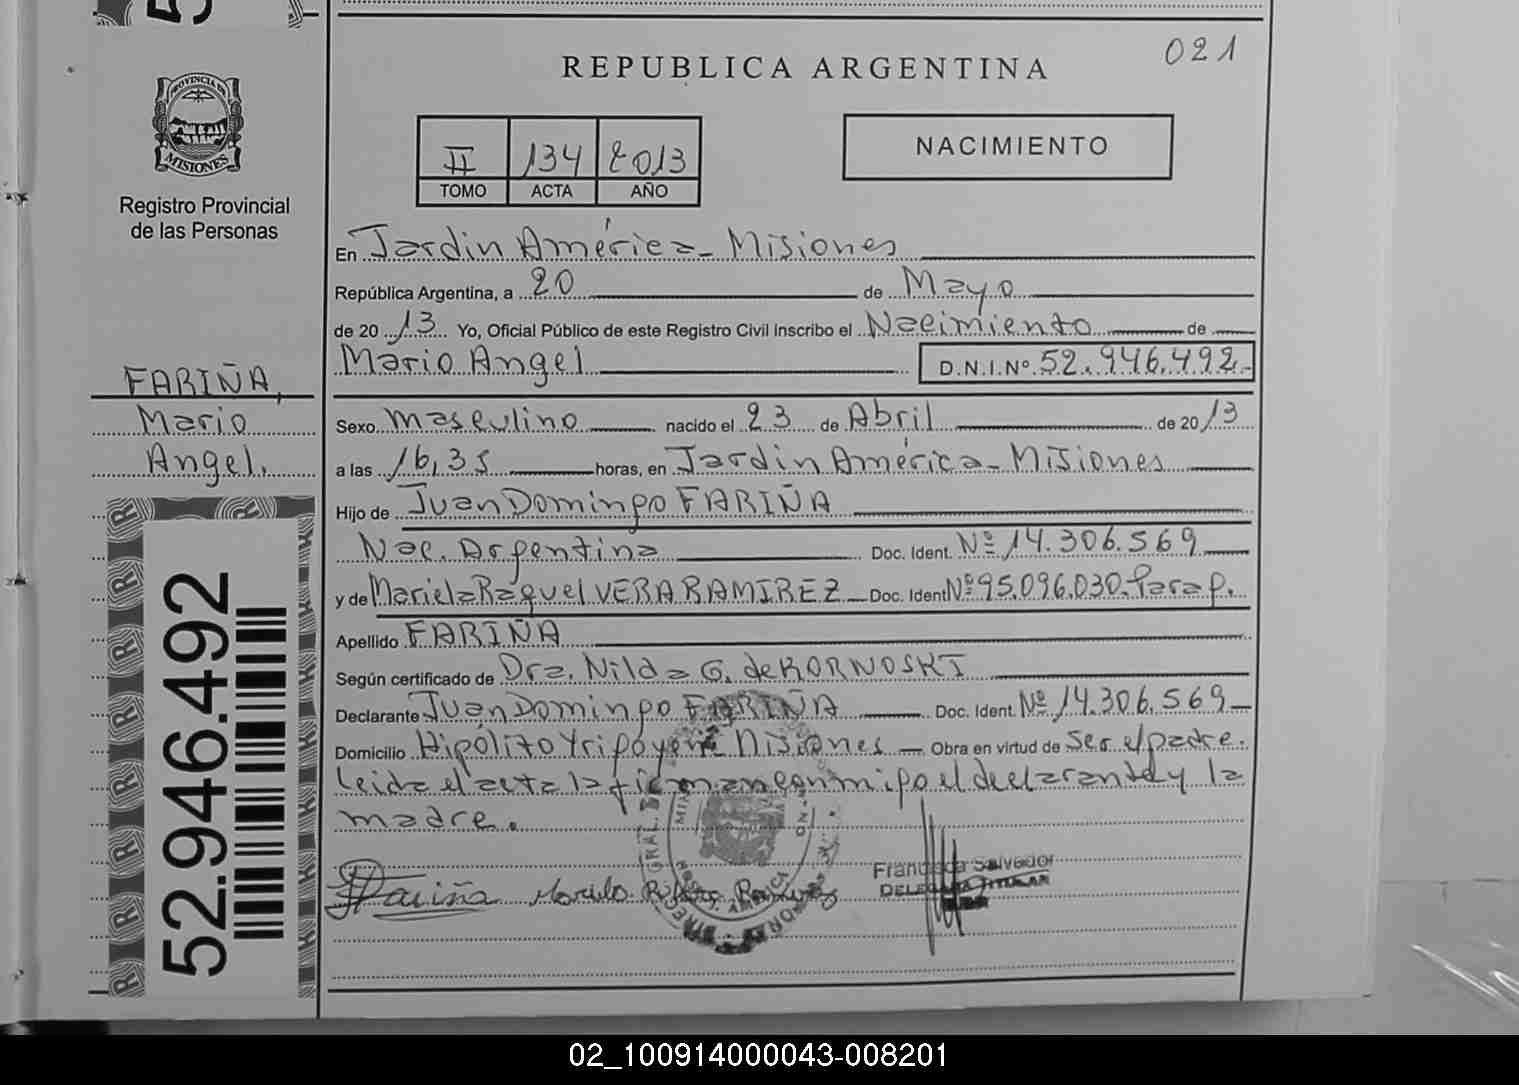 021
REPUBLICA ARGENTINA
PROVINCIA DE
MISIONES
Registro Provincial
de las Personas
II 134 2013
TOMO ACTA AÑO
NACIMIENTO
En Jardin América - Misiones
República Argentina, a 20 de Mayo
de 20 13 Yo, Oficial Público de este Registro Civil Inscribo el Nacimiento de
Mario Angel D.N.I.Nº 52.946.492.-
FARIÑA,
Mario
Angel.
Sexo Masculino nacido el 23 de Abril de 20 13
a las 16,35 horas, en Jardin América - Misiones
Hijo de Juan Domingo FARIÑA
Nac. Argentina Doc. Ident. Nº 14.306.569
y de Mariela Raquel VERA RAMIREZ Doc. Ident Nº 95.096.030. Parag.
Apellido FARIÑA
Según certificado de Dra. Nilda G. de KORNOSKI
Declarante Juan Domingo FARIÑA Doc. Ident. Nº 14.306.569
Domicilio Hipólito Yrigoyen Misiones Obra en virtud de Ser el padre.
Leida el acta la firman conmigo el declarante y la
madre.
Fariña
Francisca Salvador
DELEGADA TITULAR
52.946.492
02_100914000043-008201